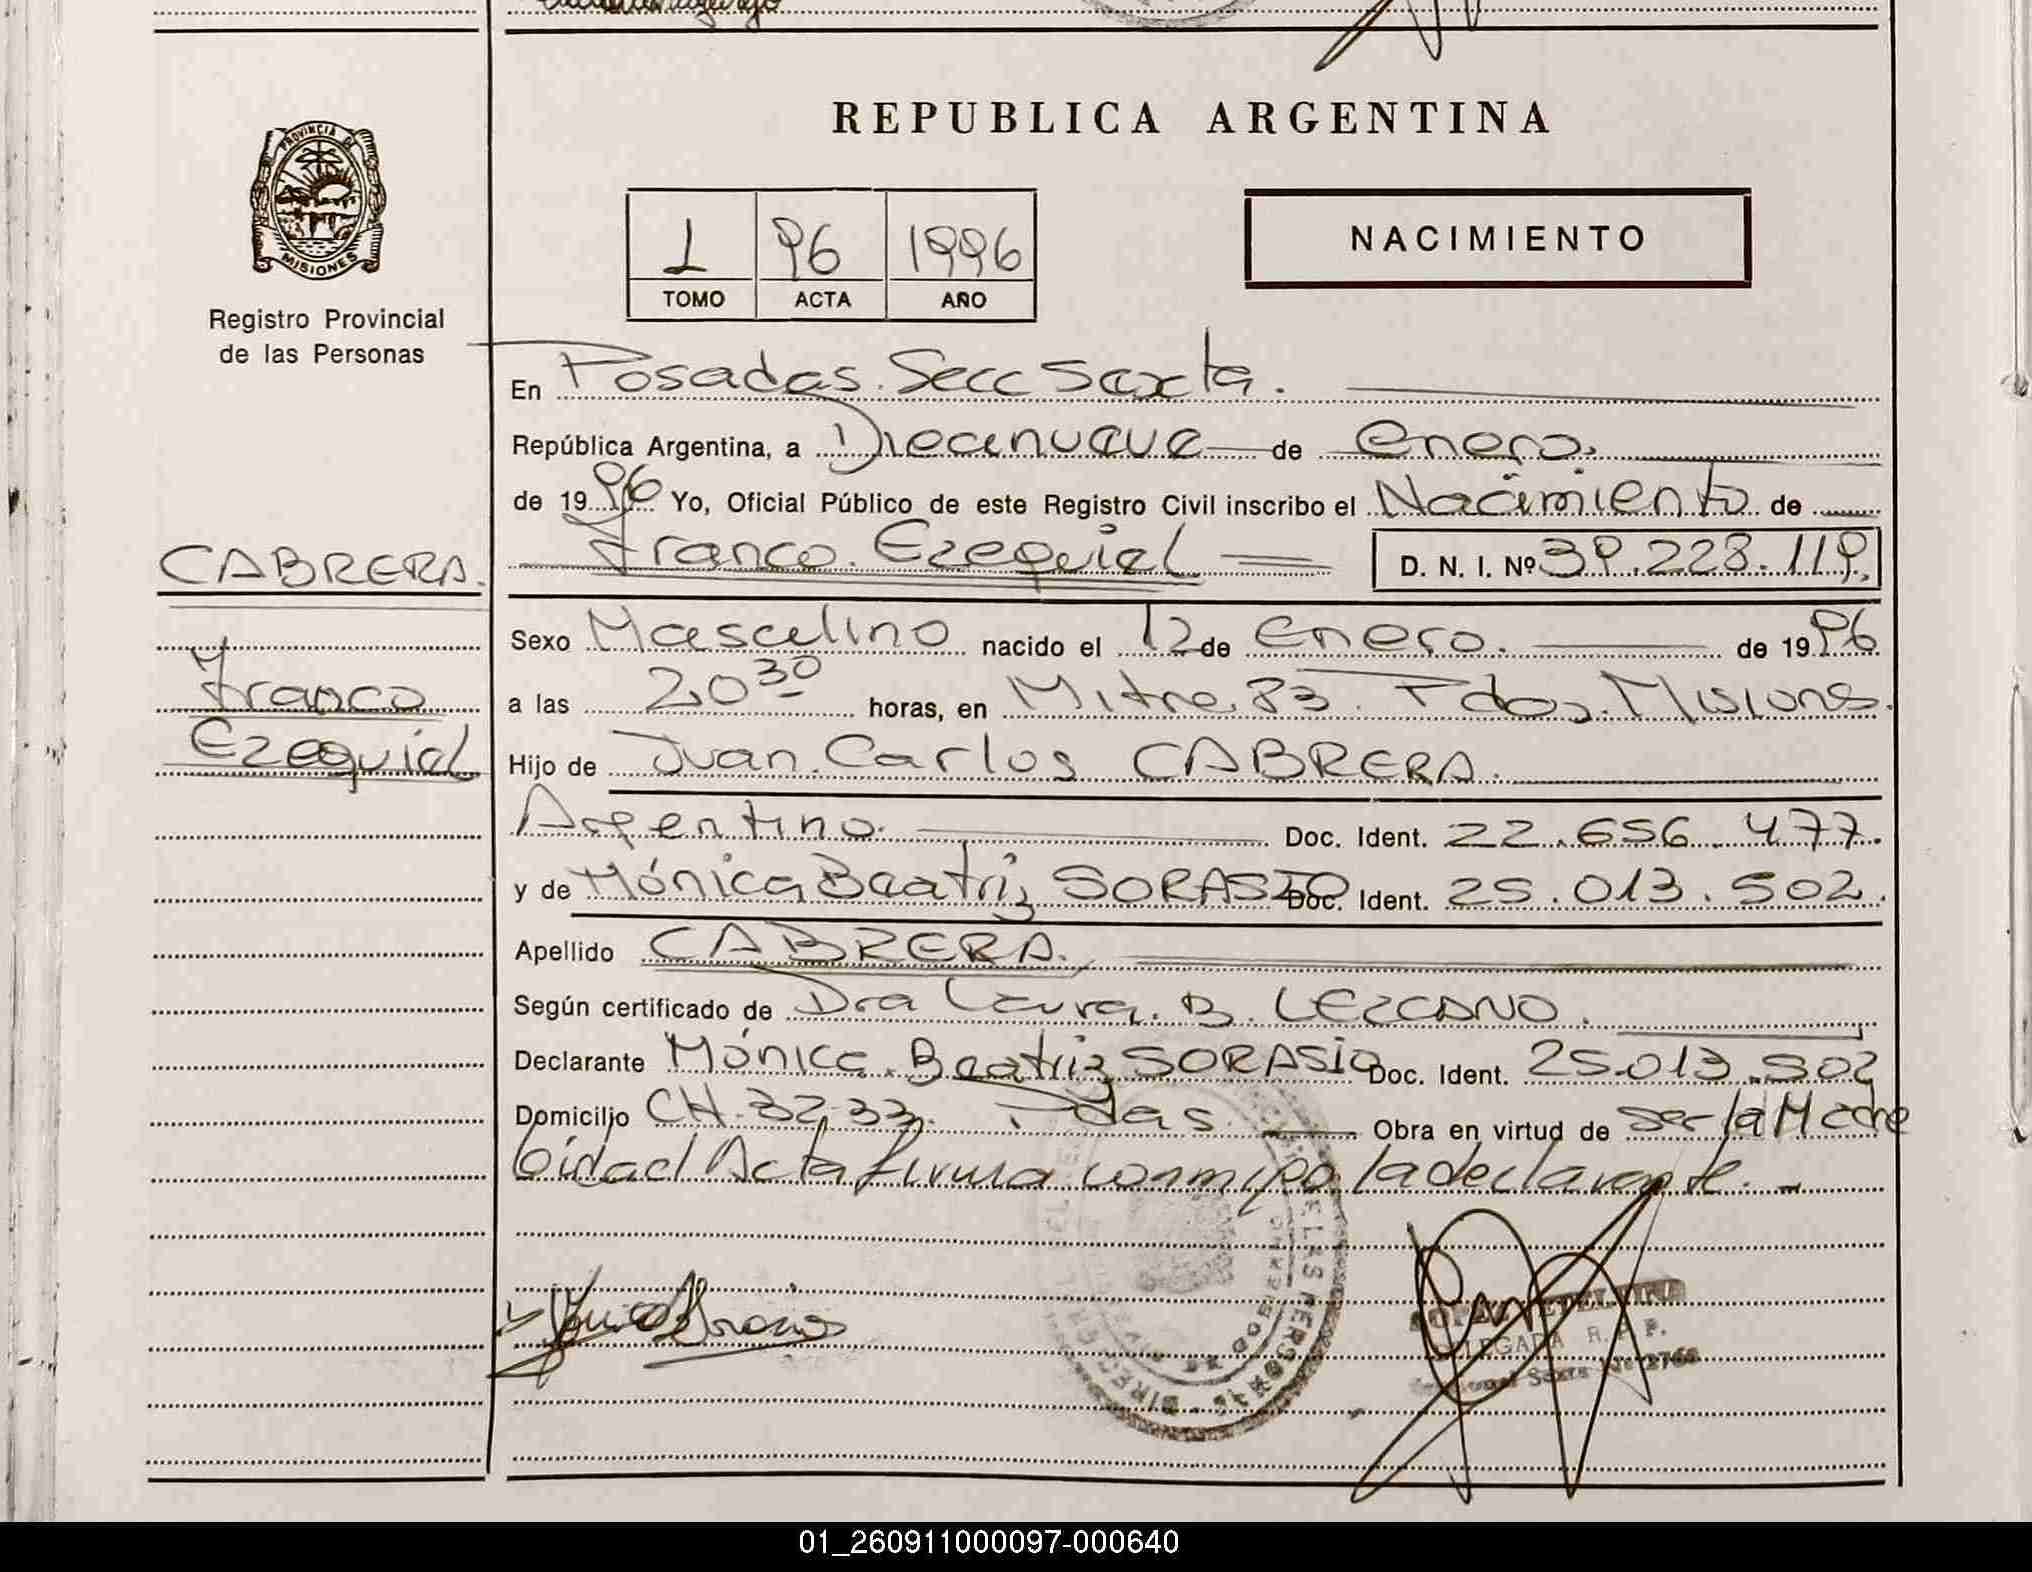 REPUBLICA ARGENTINA
PROVINCIA DE
MISIONES
Registro Provincial
de las Personas
1 96 1996
TOMO ACTA AÑO
NACIMIENTO
En Posadas. Secc Sexta.
República Argentina, a Diecinueve de enero.
de 1996 Yo, Oficial Público de este Registro Civil inscribo el Nacimiento de
Franco Ezequiel D. N. I. Nº 39.223.119.
CABRERA.
Franco
Ezequiel
Sexo Masculino nacido el 12 de Enero. de 1996
a las 20 30 horas, en Mitre 83. Pdas. Misiones.
Hijo de Juan Carlos CABRERA.
Argentino. Doc. Ident. 22.656.477.
y de Mónica Beatriz SORASIO Doc. Ident. 25.013.502.
Apellido CABRERA.
Según certificado de Dra Laura. B. LEZCANO.
Declarante Mónica. Beatriz SORASIO Doc. Ident. 25.013.502
Domicilio CH. 32-33. Pdas. Obra en virtud de ser la Madre
leida el Acta firma conmigo la declarante. -
DELEGADA R. P. P.
01_260911000097-000640